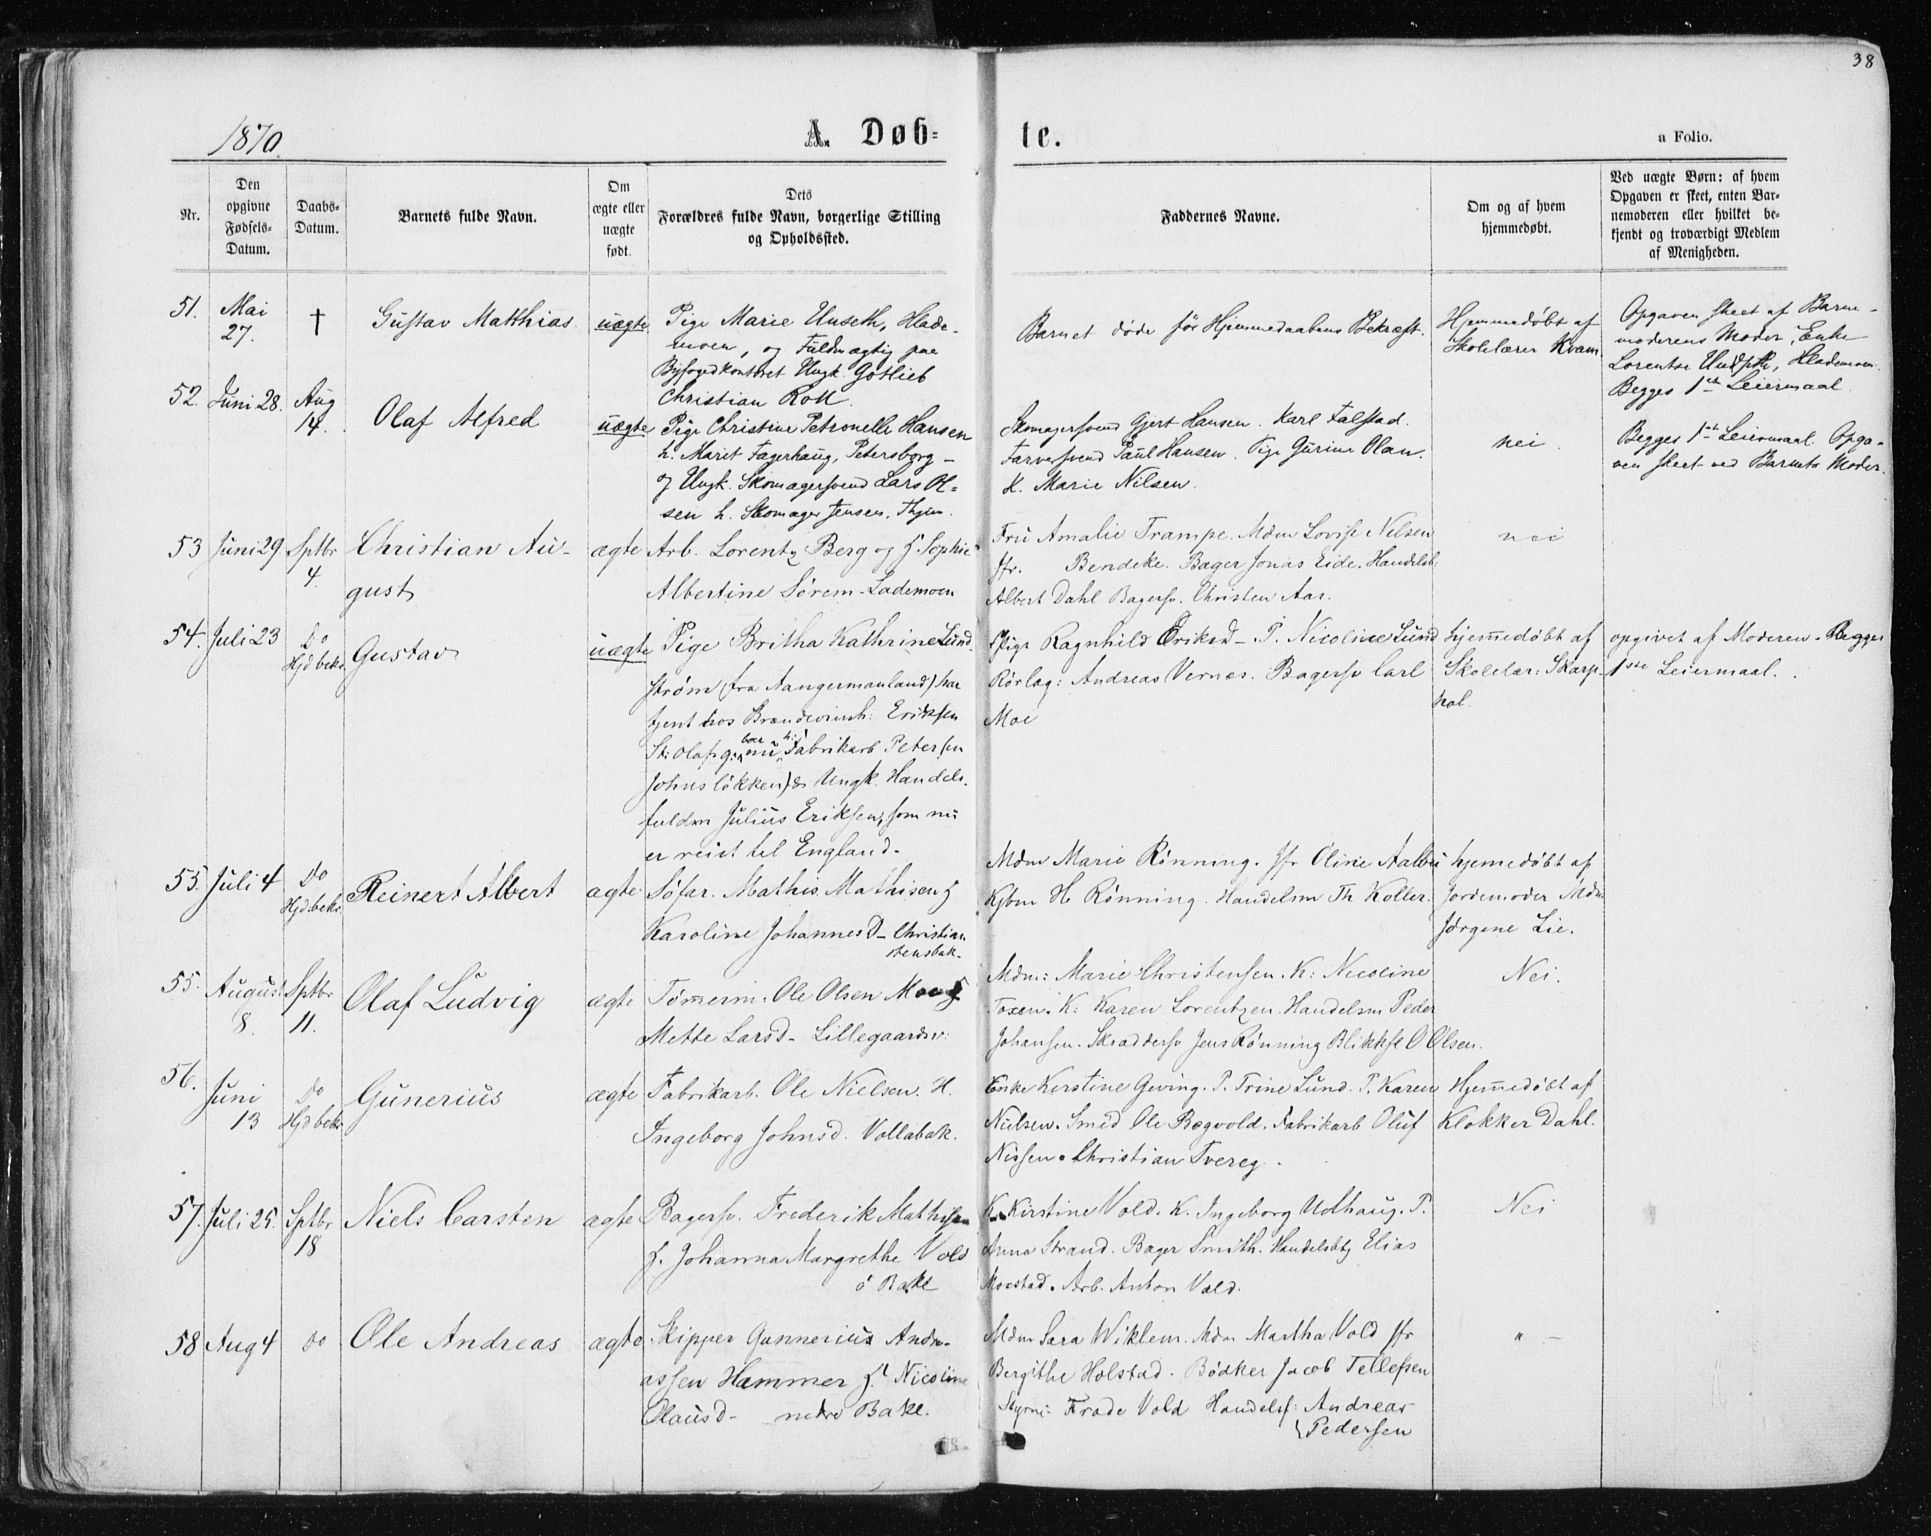 38
1870.
A. Døb-
te.
a Folio.
Nr.
Den
opgivne
Fødsels-
Datum.
Daabs-
Datum.
Barnets fulde Navn.
Om
ægte eller
uægte
født.
Dets
Forældres fulde Navn, borgerlige Stilling
og Opholdssted.
Faddernes Navne.
Om og af hvem
hjemmedøbt.
Ved uægte Børn: af hvem
Opgaven er skeet, enten Bar-
nemoderen eller hvilket be-
kjendt og troværdigt Medlem
af Menigheden.
51.
Mai
27.
†
Gustav Matthias
uægte
Pige Marie Unseth, Lade-
moen, og Fuldmægtig paa
Byfogedkontoret Ungk. Gotlieb
Christian Roll.
Barnet døde før Hjemmedaabens Bekræft.
Hjemmedøbt af
Skolelærer Kvam
Opgaven skeet af Barne-
moderens Moder, Enke
Lorentse Unseth, Lademoen.
Begges 1ste Leiermaal.
52.
Juni 28.
Aug
14.
Olaf Alfred
uægte
Pige Christine Petronelle Hansen
h. Marit Fagerhaug, Petersborg -
og Ungk. Skomagersvend Lars Ol-
sen h. Skomager Jensen, Thjem.
Skomagersvend Gjert Hansen. Karl Falstad.
Farversvend Paul Hansen. Pige Gurine Olan.
K. Marie Nilsen.
nei.
Begges 1ste Leiermaal. Opga-
ven skeet ved Barnets Moder.
53
Juni 29
Sptbr
4.
Christian Au-
gust
ægte
Arb. Lorentz Berg og H. Sophie
Albertine Sørem - Lademoen
Fru Amalie Trampe. Mdm Lovise Nilsen
Jfr. Bendeke. Bager Jonas Eide. Handelsb.
Albert Dahl Bagersv. Christen Aas.
nei
54.
Juli 23
Do
Hjd bekr.
Gustav
uægte
Pige Britha Kathrine Lund-
strøm (fra Aangermanland) har
tjent hos Brændevinsh: Eriksen
St: Olafsg: boer nu h: Fabrikarb Petersen
Johnsløkken) & Ungk. Handels-
fuldm Julius Eriksen, som nu
er reist til England.
Pige Ragnhild Eriksd - P. Nicoline Lund
Rørlæg: Andreas Vernes. Bagersv Carl
Moe
hjemedøbt af
Skolelær: Skarp-
hol.
opgivet af Moderen. Begges
1ste Leiermaal.
55.
Juli 4
Do
Hjd.bekr.
Reinert Albert
ægte
Søfar. Mathis Mathisen &
Karoline Johannesd - Christian
stensbak.
Mdm Marie Rønning. Jfr Oline Aalbu
Kjbm H Rønning. Handelsm Th Koller.
hjemedøbt af
Jordemoder Mdm
Jørgene Lie.
55.
August
8.
Sptbr
11.
Olaf Ludvig
ægte
Tømerm. Ole Olsen Moe &
Mette Larsd - Lillegaardsv:
Mdm: Marie Christensen. K: Nicoline
Foxen. K: Karen Lorentzen. Handelsm Peder
Johansen. Skræddersv Jens Rønning Blikksl O Olsen.
Nei.
56.
Juni
13
Do
Hjd bekr.
Gunerius
ægte
Fabrikarb. Ole Nielsen. H.
Ingeborg Johnsd. Vollabak.
Enke Kerstine Geving. P. Trine Lund. P. Karen
Nielsen. Smed Ole Bøgvold. Fabrikarb Oluf
Nissen. Christian Tvereg.
Hjemedøbt af
Klokker Dahl.
57.
Juli 25.
Sptbr
18
Niels Carsten
ægte
Bagersv. Frederik Mathisen
H. Johanna Margrethe Vold
ö Bakl
K. Kirstine Vold. K. Ingeborg Udhaug. P.
Anna Strand. Bager Smith. Handelsbtj Elias
Moestad. Arb. Anton Vold.
Nei
58
Aug 4
Do
Ole Andreas
ægte
Skipper Gunnerius Andre-
assen Hammer H. Nicoline
Olausd - nedre Bakl.
Mdm Sara Wiklem. Mdm Martha Vold Jfr
Bergithe Holstad. Bødker Jacob Tellefsen
Styrm: Frode Vold Handelsf: Andreas
Pedersen
" -